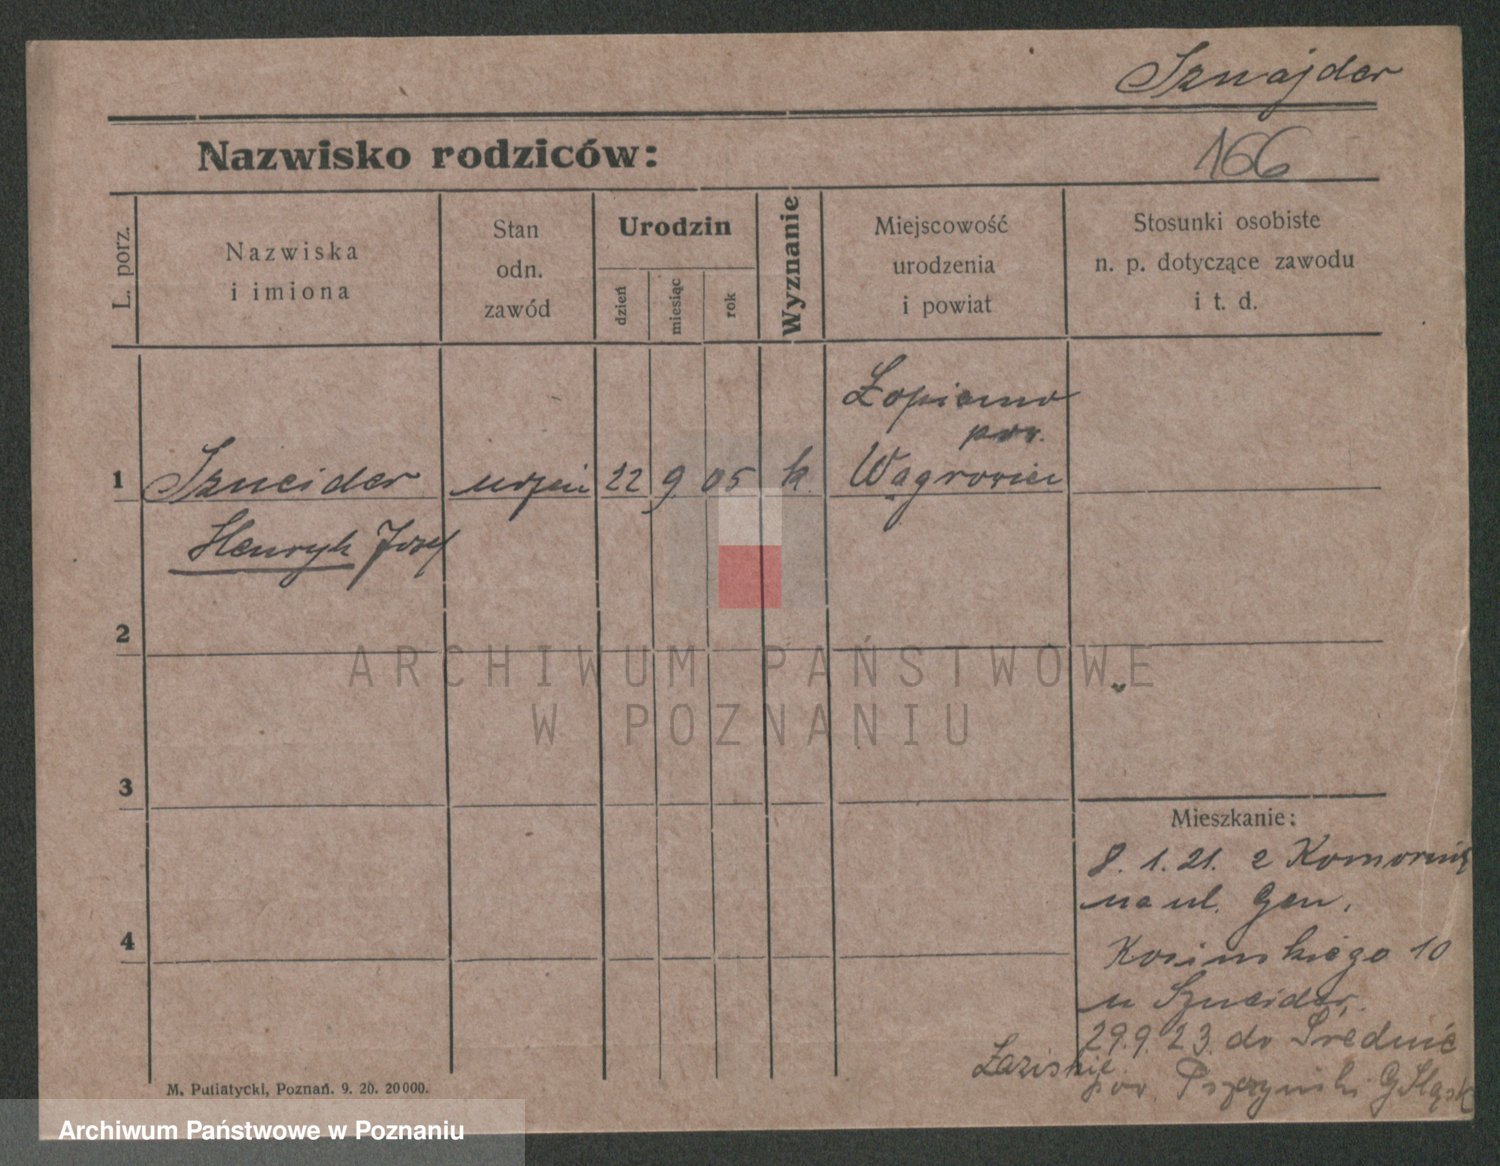 Sznajder
Nazwisko rodziców:
166
L. porz.
Nazwiska
i imiona
Stan
odn.
zawód
Urodzin
dzień
miesiąc
rok
Wyznanie
Miejscowość
urodzenia
i powiat
Stosunki osobiste
n. p. dotyczące zawodu
i t. d.
Łopienno
pow.
1 Szneider uczeń 22 9 05 k. Wągrowiec
Henryk Józef
2
3
4
Mieszkanie:
8. 1. 21. z Komornik
na ul. Gen.
Kosińskiego 10
u Szneider.
29.9.23. do Średnie
Łaziskie
pow. Pszczyński G Śląsk
M. Putiatycki, Poznań. 9. 20. 20000.
ARCHIWUM PAŃSTWOWE
W POZNANIU
Archiwum Państwowe w Poznaniu